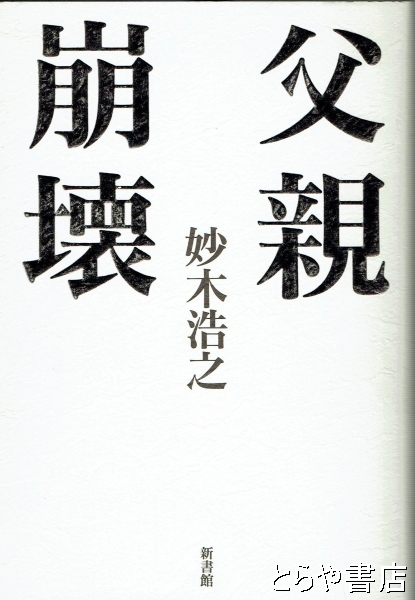 父親
崩壊
妙木浩之
新書館
とらや書店